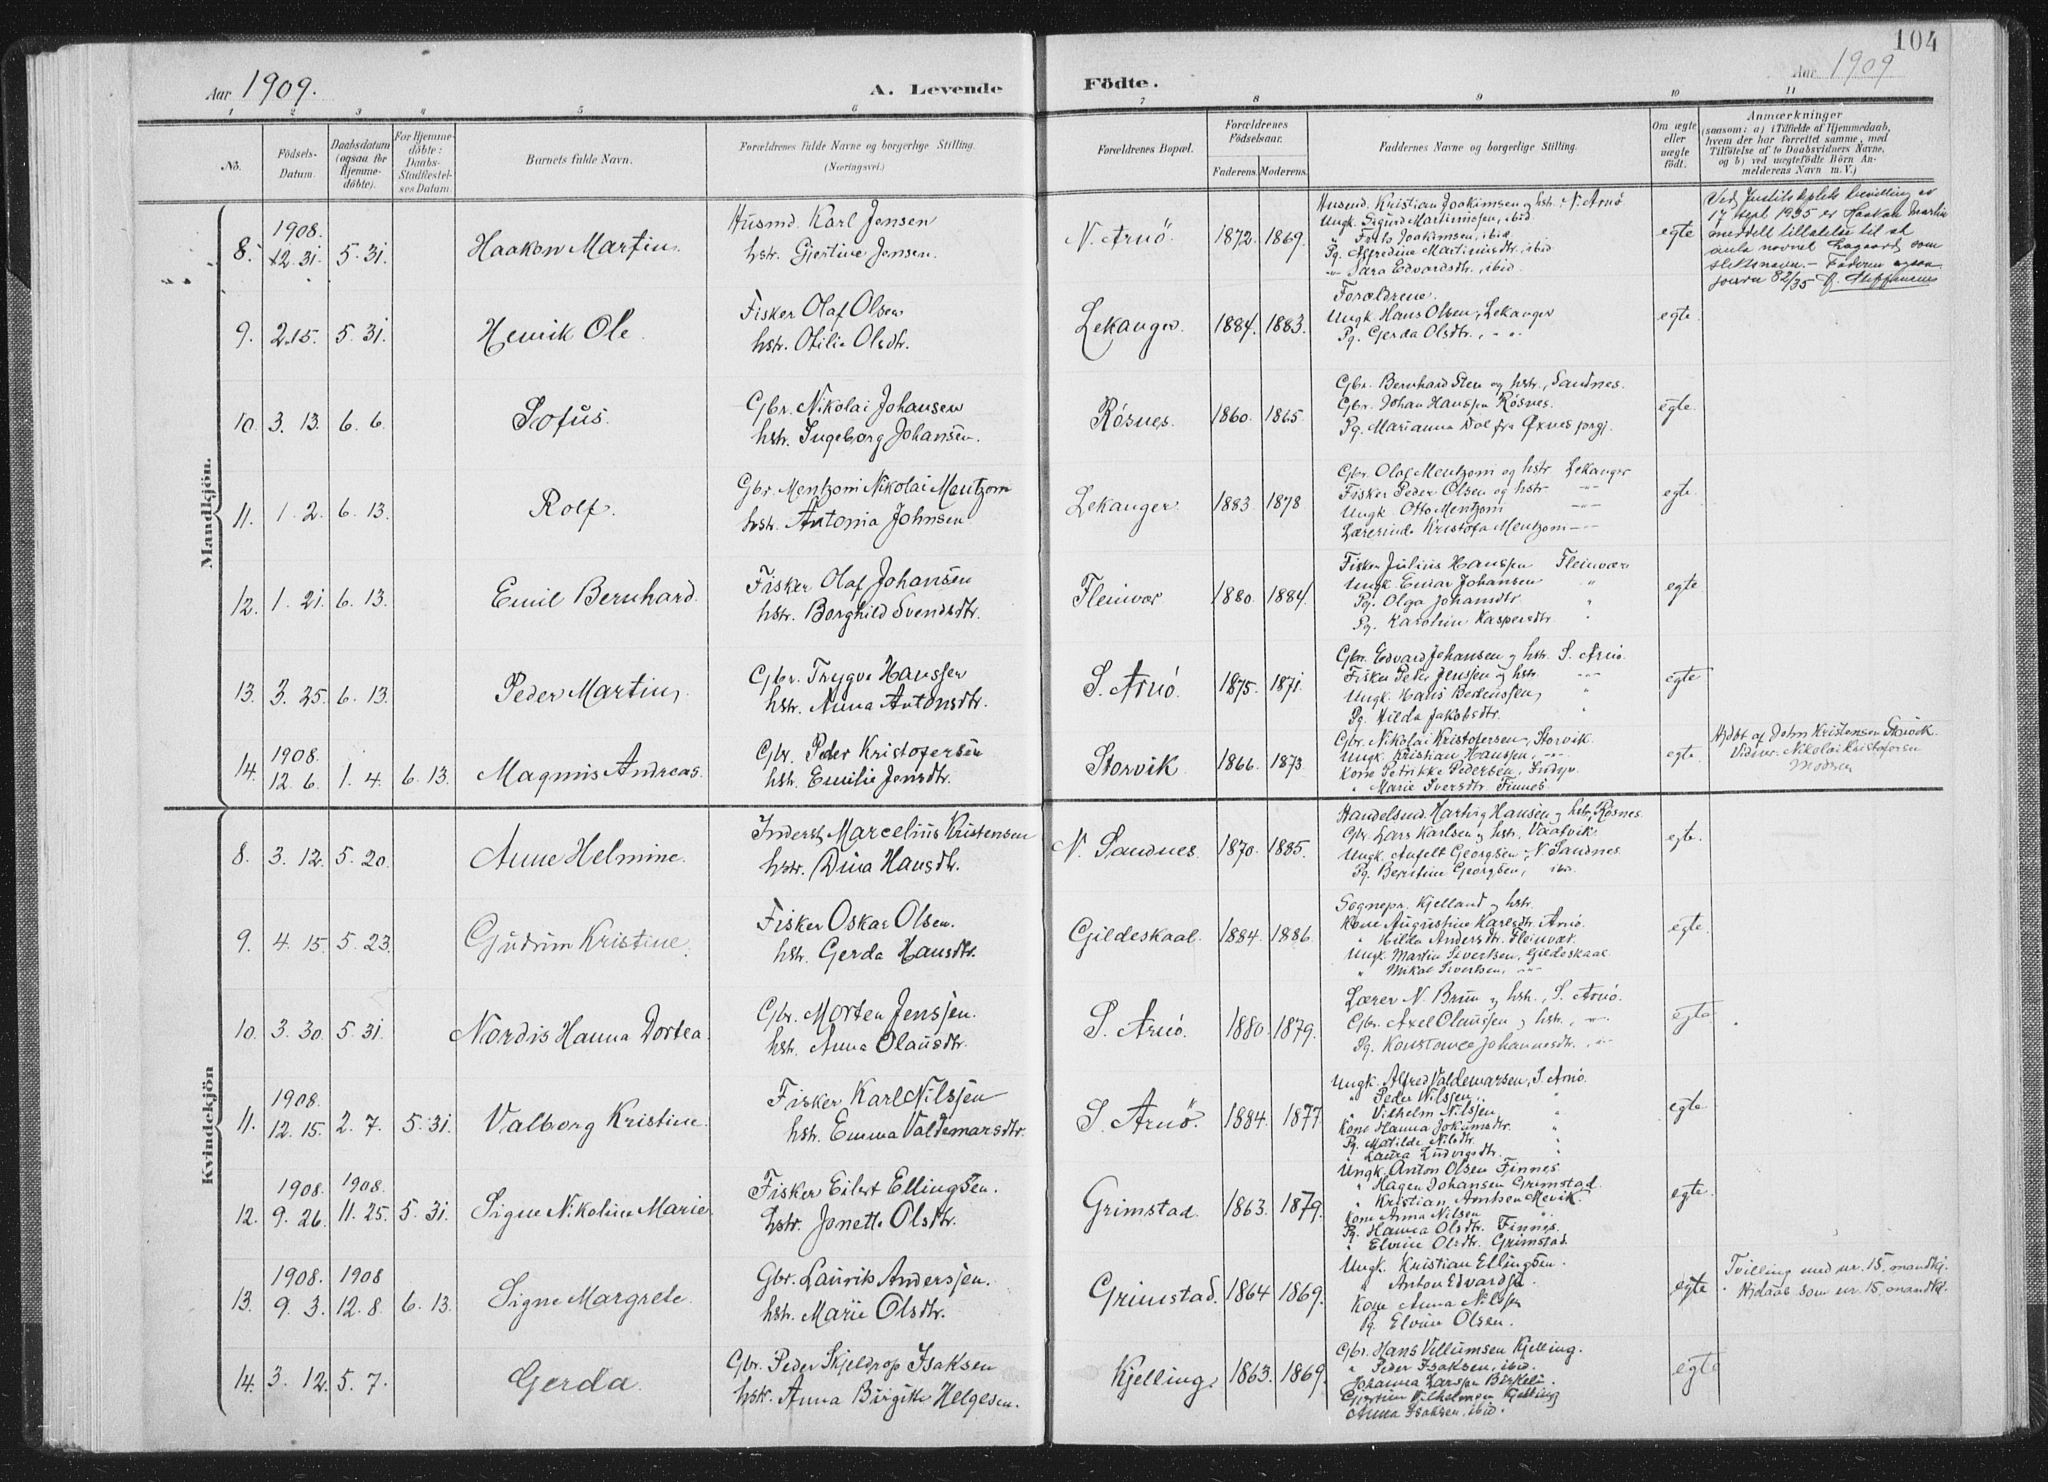 104
Aar 1909.
A. Levende
Födte.
Aar 1909
1 2 3 4 5 6 7 8 9 10 11
Nô.
Födsels-Datum.
Daabsdatum (ogsaa for Hjemmedöbte).
For Hjemmedöbte: Daabs-Stadfæstelses Datum.
Barnets fulde Navn.
Forældrenes fulde Navne og borgerlige Stilling. (Næringsvei.)
Forældrenes Bopæl.
Forældrenes Födselsaar.
Faderens. Moderens.
Faddernes Navne og borgerlige Stilling.
Om ægte eller uægte födt.
Anmærkninger
(saasom: a) i Tilfælde af Hjemmedaab,
hvem der har forrettet samme, med
Tilföielse af to Daabsvidners Navne,
og b) ved uægtefödte Börn An-
melderens Navn m. V.)
Mandkjön.
8. 1908. 12. 31. 5. 31. Haakon Martin.
Husmd. Karl Jensen
hstr. Gjertine Jensen.
N. Arnö. 1872. 1869.
Husmd. Kristian Joakimsen og hstr. N. Arnö
Ungk. Sigurd Martinussen, ibid
" Frits Joakimsen, ibid.
Pg. Alfredine Martinusdtr., ibid
" Sara Edvardsdtr., ibid.
egte
Ved Justitsdeptets bevilling av
17 sept. 1935 er Haakon Martin
meddelt tillatelse til at
anta navnet som
slektsnavn. -
journ 82/35
9. 2. 15. 5. 31. Henrik Ole.
Fisker Olaf Olsen
hstr. Otilie Olsdtr.
Lekanger. 1884. 1883.
Forældrene.
Ungk. Hans Olsen, Lekanger
Pg. Gerda Olsdtr., " "
egte.
10. 3. 13. 6. 6. Sofus.
Gbr. Nikolai Johansen
hstr. Ingeborg Johansen.
Rösnes. 1860. 1865.
Gbr. Bernhard Sten og hstr., Sandnes.
Gbr. Johan Hanssen Rösnes.
Pg. Marianna Dol fra Öxnes prgj.
egte.
11. 1. 2. 6. 13. Rolf.
Gbr. Mentzom Nikolai Mentzom
hstr. Antonia Johnsen
Lekanger 1883. 1878
Gbr. Olaf Mentzom og hstr Lekanger
Fisker Peder Olsen og hstr "
Ungk. Otto Mentzom "
Lærerinde Kristofa Mentzom "
egte.
12. 1. 21. 6. 13. Emil Bernhard.
Fisker Olaf Johansen
hstr. Borghild Svendsdtr.
Fleinvær 1880. 1884.
Fisker Julius Hanssen Fleinvær
Ungk. Einar Johansen "
Pg. Olga Johansdtr "
Pg. Karoline Kaspersdtr. "
egte
13. 3. 25. 6. 13. Peder Martin,
Gbr. Trygve Hanssen
hstr. Anna Antonsdtr.
S. Arnö. 1875. 1871.
Gbr. Edvard Johansen og hstr. S. Arnö.
Fisker Peder Jenssen og hstr. "
Ungk. Hans Berentssen, "
Pg. Hilda Jakobsdtr. "
egte
14. 1908. 12. 6. 1. 4. 6. 13. Magnus Andreas.
Gbr. Peder Kristofersen
hstr. Emilie Jensdtr.
Storvik 1866. 1873.
Gbr. Nikolai Kristofersen, Storvik.
Ungk. Kristian Hanssen, "
Kone Petrikke Pedersen, Indyr.
" Marie Iversdtr Finnes
egte.
Hjdöbt af John Kristensen Storvik.
Vidner. Nikolai Kristofersen
Moderen
Kvindekjön
8. 3. 12. 5. 20. Anne Helmine.
Inderst Marcelius Kristensen
hstr. Dina Hansdtr.
N. Sandnes. 1870. 1885.
Handelsmd. Hartvig Hansen og hstr, Rösnes.
Gbr. Lars Karlsen og hstr. Vaatvik
Ungk. Anfelt Georgsen, N. Sandnes.
Pg. Berntine Georgsen, ibid.
egte.
9. 4. 15. 5. 23. Gudrun Kristine.
Fisker Oskar Olsen.
hstr. Gerda Hansdtr.
Gildeskaal. 1884. 1886.
Sognepr. Kjelland og hstr.
Kone Augustine Karlsdtr. Arnö.
" Hilda Andersdtr. Fleinvær.
Ungk. Martin Sivertsen, Gildeskaal.
" Mikal Sivertsen, "
egte.
10. 3. 30. 5. 31. Nordis Hanna Dortea.
Gbr. Morten Jenssen.
hstr. Anna Olausdtr.
S. Arnö. 1880. 1879.
Lærer N. Bruun og hstr., S. Arnö.
Gbr. Axel Olaussen og hstr., "
Pg. Konstance Johannesdtr., "
egte.
11. 1908. 12. 15. 2. 7. 5. 31. Valborg Kristine.
Fisker Karl Nilssen
hstr. Emma Valdemarsdtr.
S. Arnö. 1884. 1877
Ungk. Alfred Valdemarsen, S. Arnö.
" Peder Nilssen, "
" Vilhelm Nilssen, "
Kone Hanna Jokumsdtr. "
Pg. Matilde Nilsdtr. "
" Laura Ludvigsdtr. "
egte
12. 1908. 9. 26. 1908. 11. 25. 5. 31. Signe Nikoline Marie.
Fisker Eilert Ellingsen.
hstr. Jonette Olsdtr.
Grimstad. 1863. 1879.
Ungk. Anton Olsen Finnes.
" Hagen Johansen Grimstad.
" Kristian Arntsen Mevik.
Kone Anna Nilsen "
Pg. Hanna Olsdtr. Finnes.
" Elvine Olsdtr. Grimstad.
egte.
13. 1908. 9. 3. 1908 12. 8. 6. 13. Signe Margrete.
Gbr. Laurits Anderssen.
hstr. Marie Olsdtr.
Grimstad. 1864 1869.
Ungk. Kristian Ellingsen.
" Anton Edvards.
Kone Anna Nilssen
Pg. Elvine Olsen.
egte
Tvilling med nr. 15. mandkj.
Hjdaab som nr. 15, mandkj.
14. 3. 12. 5. 7. Gerda.
Gbr. Peder Skjeldrop Isaksen
hstr. Anna Birgitte Helgesen.
Kjelling. 1863. 1869.
Gbr. Hans Villumsen Kjelling.
" Peder Isaksen, ibid.
Johanna Larssen Birkeli.
Gjertine Vilhelmsen Kjelling
Anna Isaksen, ibid.
egte